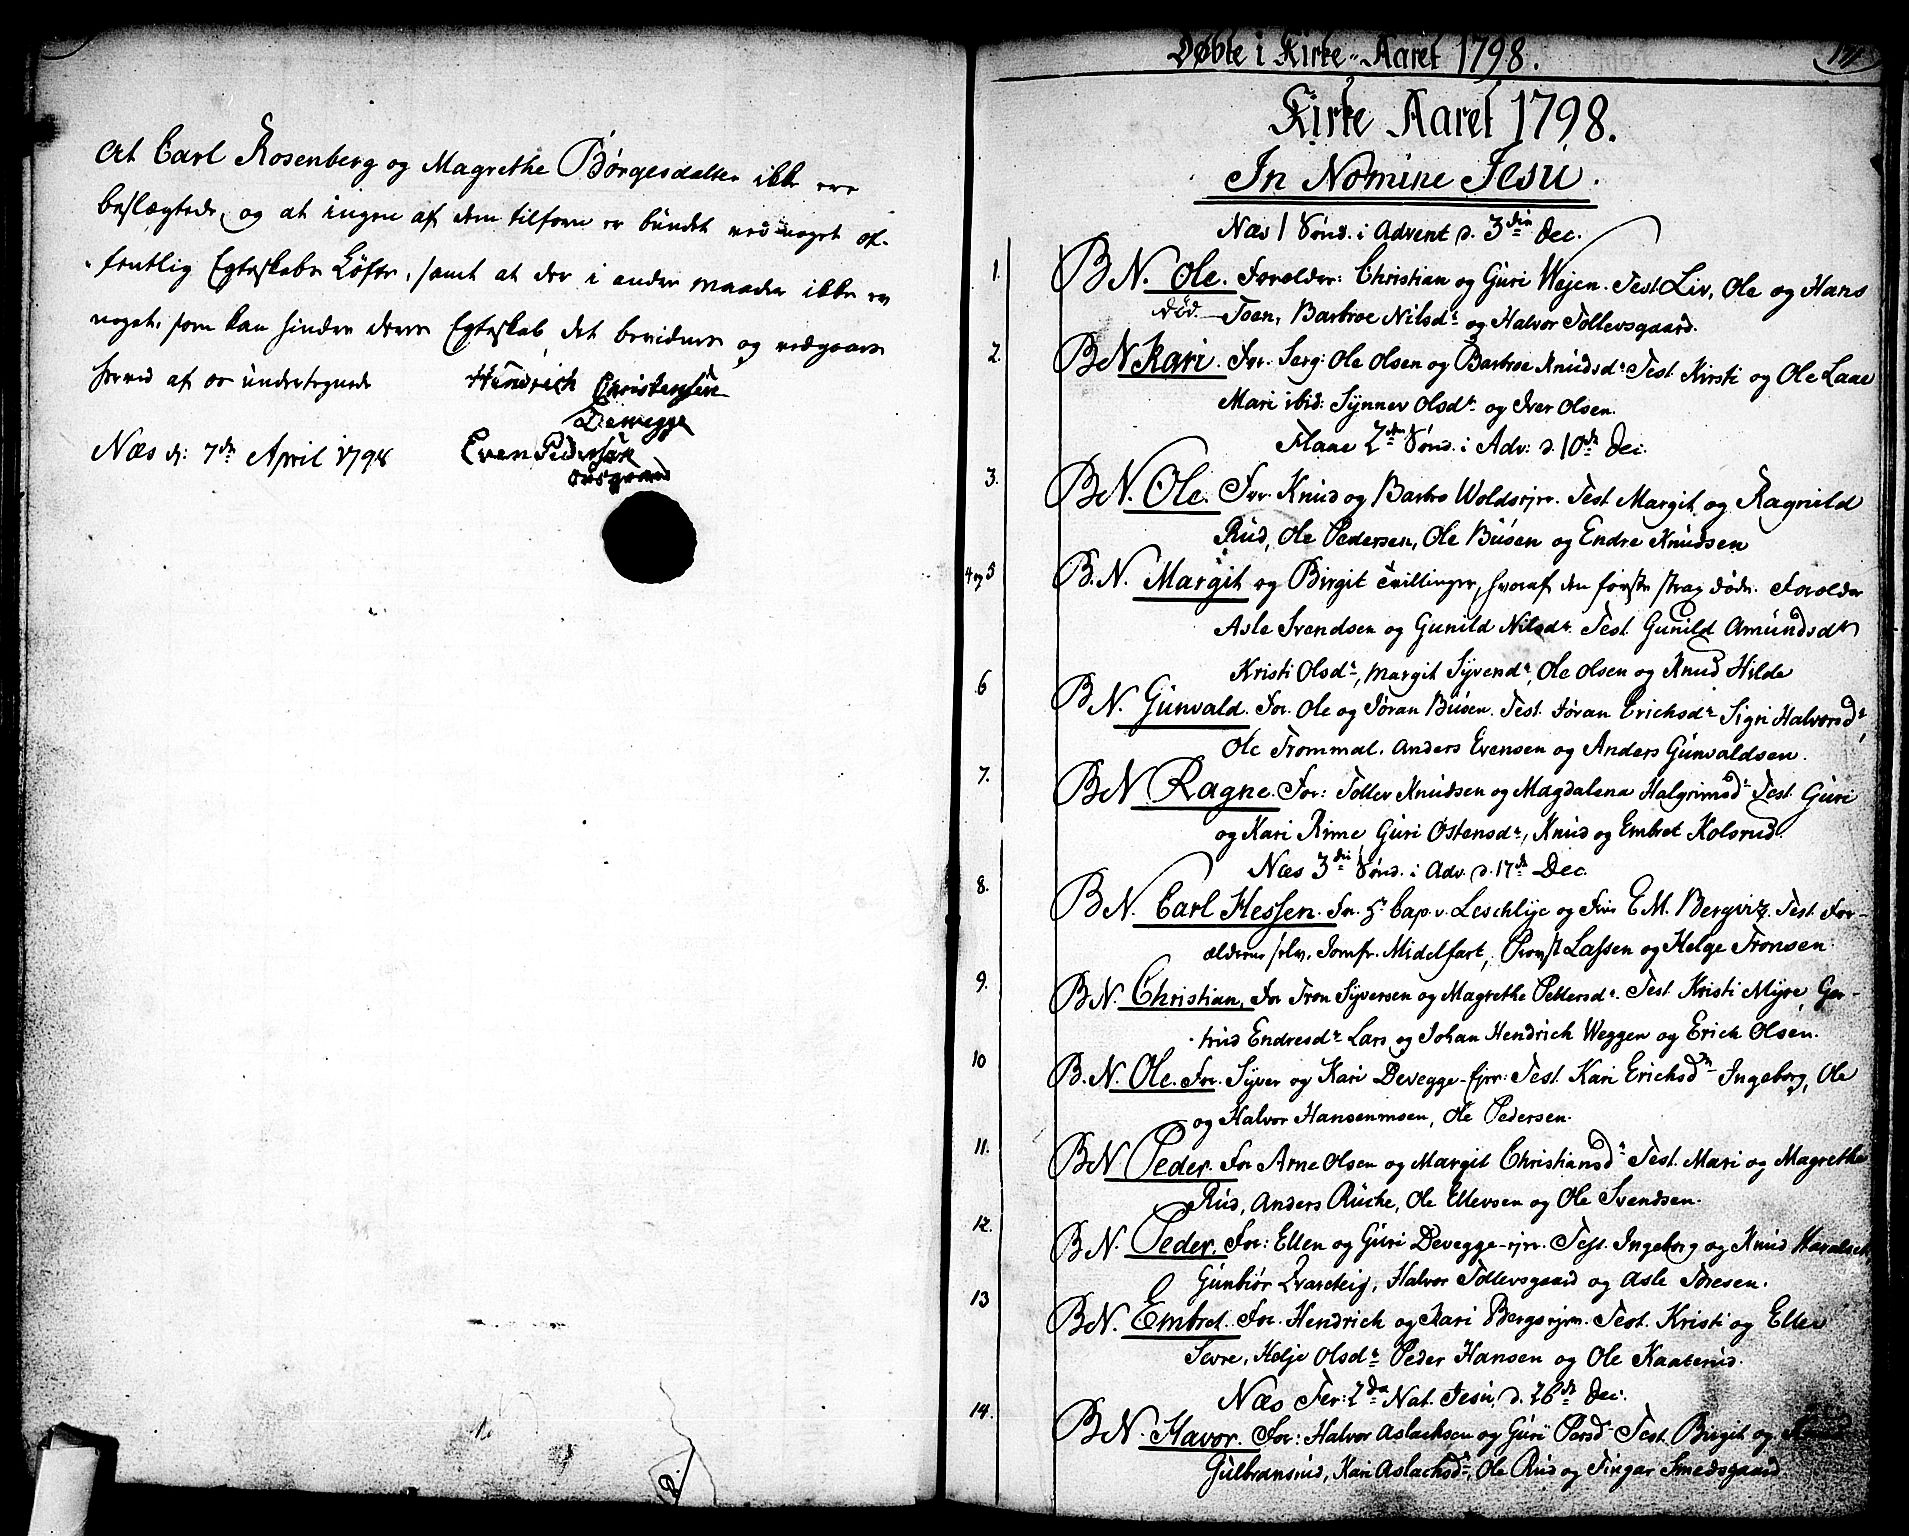 At Carl Rosenberg og Magrethe Börgesdatter ikke ere
beslægtede, og at ingen af dem tilforn er bundet ved noget of-
fentlig Egteskabs Löfte, samt at der i andre maader ikke er
noget, som kan hindre deres Egteskab, det bevidnes og vedgaaes
herved af os undertegnede
Hendrich Christensen
Devegge
Næs d: 7de April 1798
Even Pedersen
Døbte i Kirke-Aaret 1798.
Kirke Aaret 1798.
In Nomine Jesu.
Næs 1 Sönd. i Advent d. 3die Dec.
1. BN. Ole. Forelder: Christian og Guri Wejen. Test. Liv, Ole og Hans
död. Toen, Barbroe Nilsdr og Halvor Tollevsgaard.
2. BN Kari. For. Serg: Ole Olsen og Barbroe Knudsdr Test. Kirsti og Ole Laae
Mari ibid: Synnev Olsdr og Iver Olsen.
Flaae 2den Sönd. i Adv: d. 10de Dec.
3. BN. Ole. For. Knud og Barbro Woldsejer. Test Margit og Ragnild
Rud, Ole Pedersen, Ole Busen og Endre Knudsen
4 og 5 B.N. Margit og Birgit Tvillinger, hvoraf den første strag döde. Forelder
Asle Svendsen og Gunild Nilsdr. Test. Gunild Amundsdr
Kristi Olsdr, Margit Syvendr, Ole Olsen og Knud Hilde
6 BN. Gunvald. For. Ole og Jöran Busen. Test. Jöran Erichsdr Sigri Halvorsdr,
Ole Trommal, Anders Evensen og Anders Gunvaldsen.
7. BN Ragne. For: Tollev Knudsen og Magdalena Halgrimsdr Test. Guri
og Kari Rime, Guri Östensdr, Knud og Embret Kolsrud.
Næs 3die Sönd. i Adv. d. 17de Dec.
8. BN. Carl Hessen. For. Hr Cap. v. Leschlye og Frue E M. Bergviz. Test. For-
ældrene selv, Jomfr. Midelfart, Provst Lassen og Helge Tronsen
9. BN. Christian, For Tron Syversen og Magrethe Pettersdr. Test. Kristi Myre, Ger-
trud Endresdr Lars og Johan Hendrich Weggen og Erich Olsen.
10 B.N. Ole. For. Syver og Kari Devegge-Ejer: Test. Kari Erichsdr Ingeborg, Ole
og Halvor Hansenmoen, Ole Pedersen.
11. BN Peder. For Arne Olsen og Margit Christiansdr Test. Mari og Magrethe
Rud, Anders Ruche, Ole Ellevsen og Ole Svendsen.
12. BN. Peder. For: Ellen og Guri Devegge-ejer. Test. Ingeborg og Knud
Gunbiör Kvarteig, Halvor Tollevsgaard og Asle Toresen.
13 BN. Embret. For. Hendrich og Kari Bergsejer. Test. Kristi og Ellev
Sevre, Helje Olsdr Peder Hansen og Ole Kaaterud.
Næs Fer: 2da Nat. Jesu, d. 26de Dec.
14. BN. Havor. For: Halvor Aslachsen og Guri Persdr Test. Birgit og
Gulbransrud, Kari Aslachsdr, Ole Rud og Fingar Smedsgaard